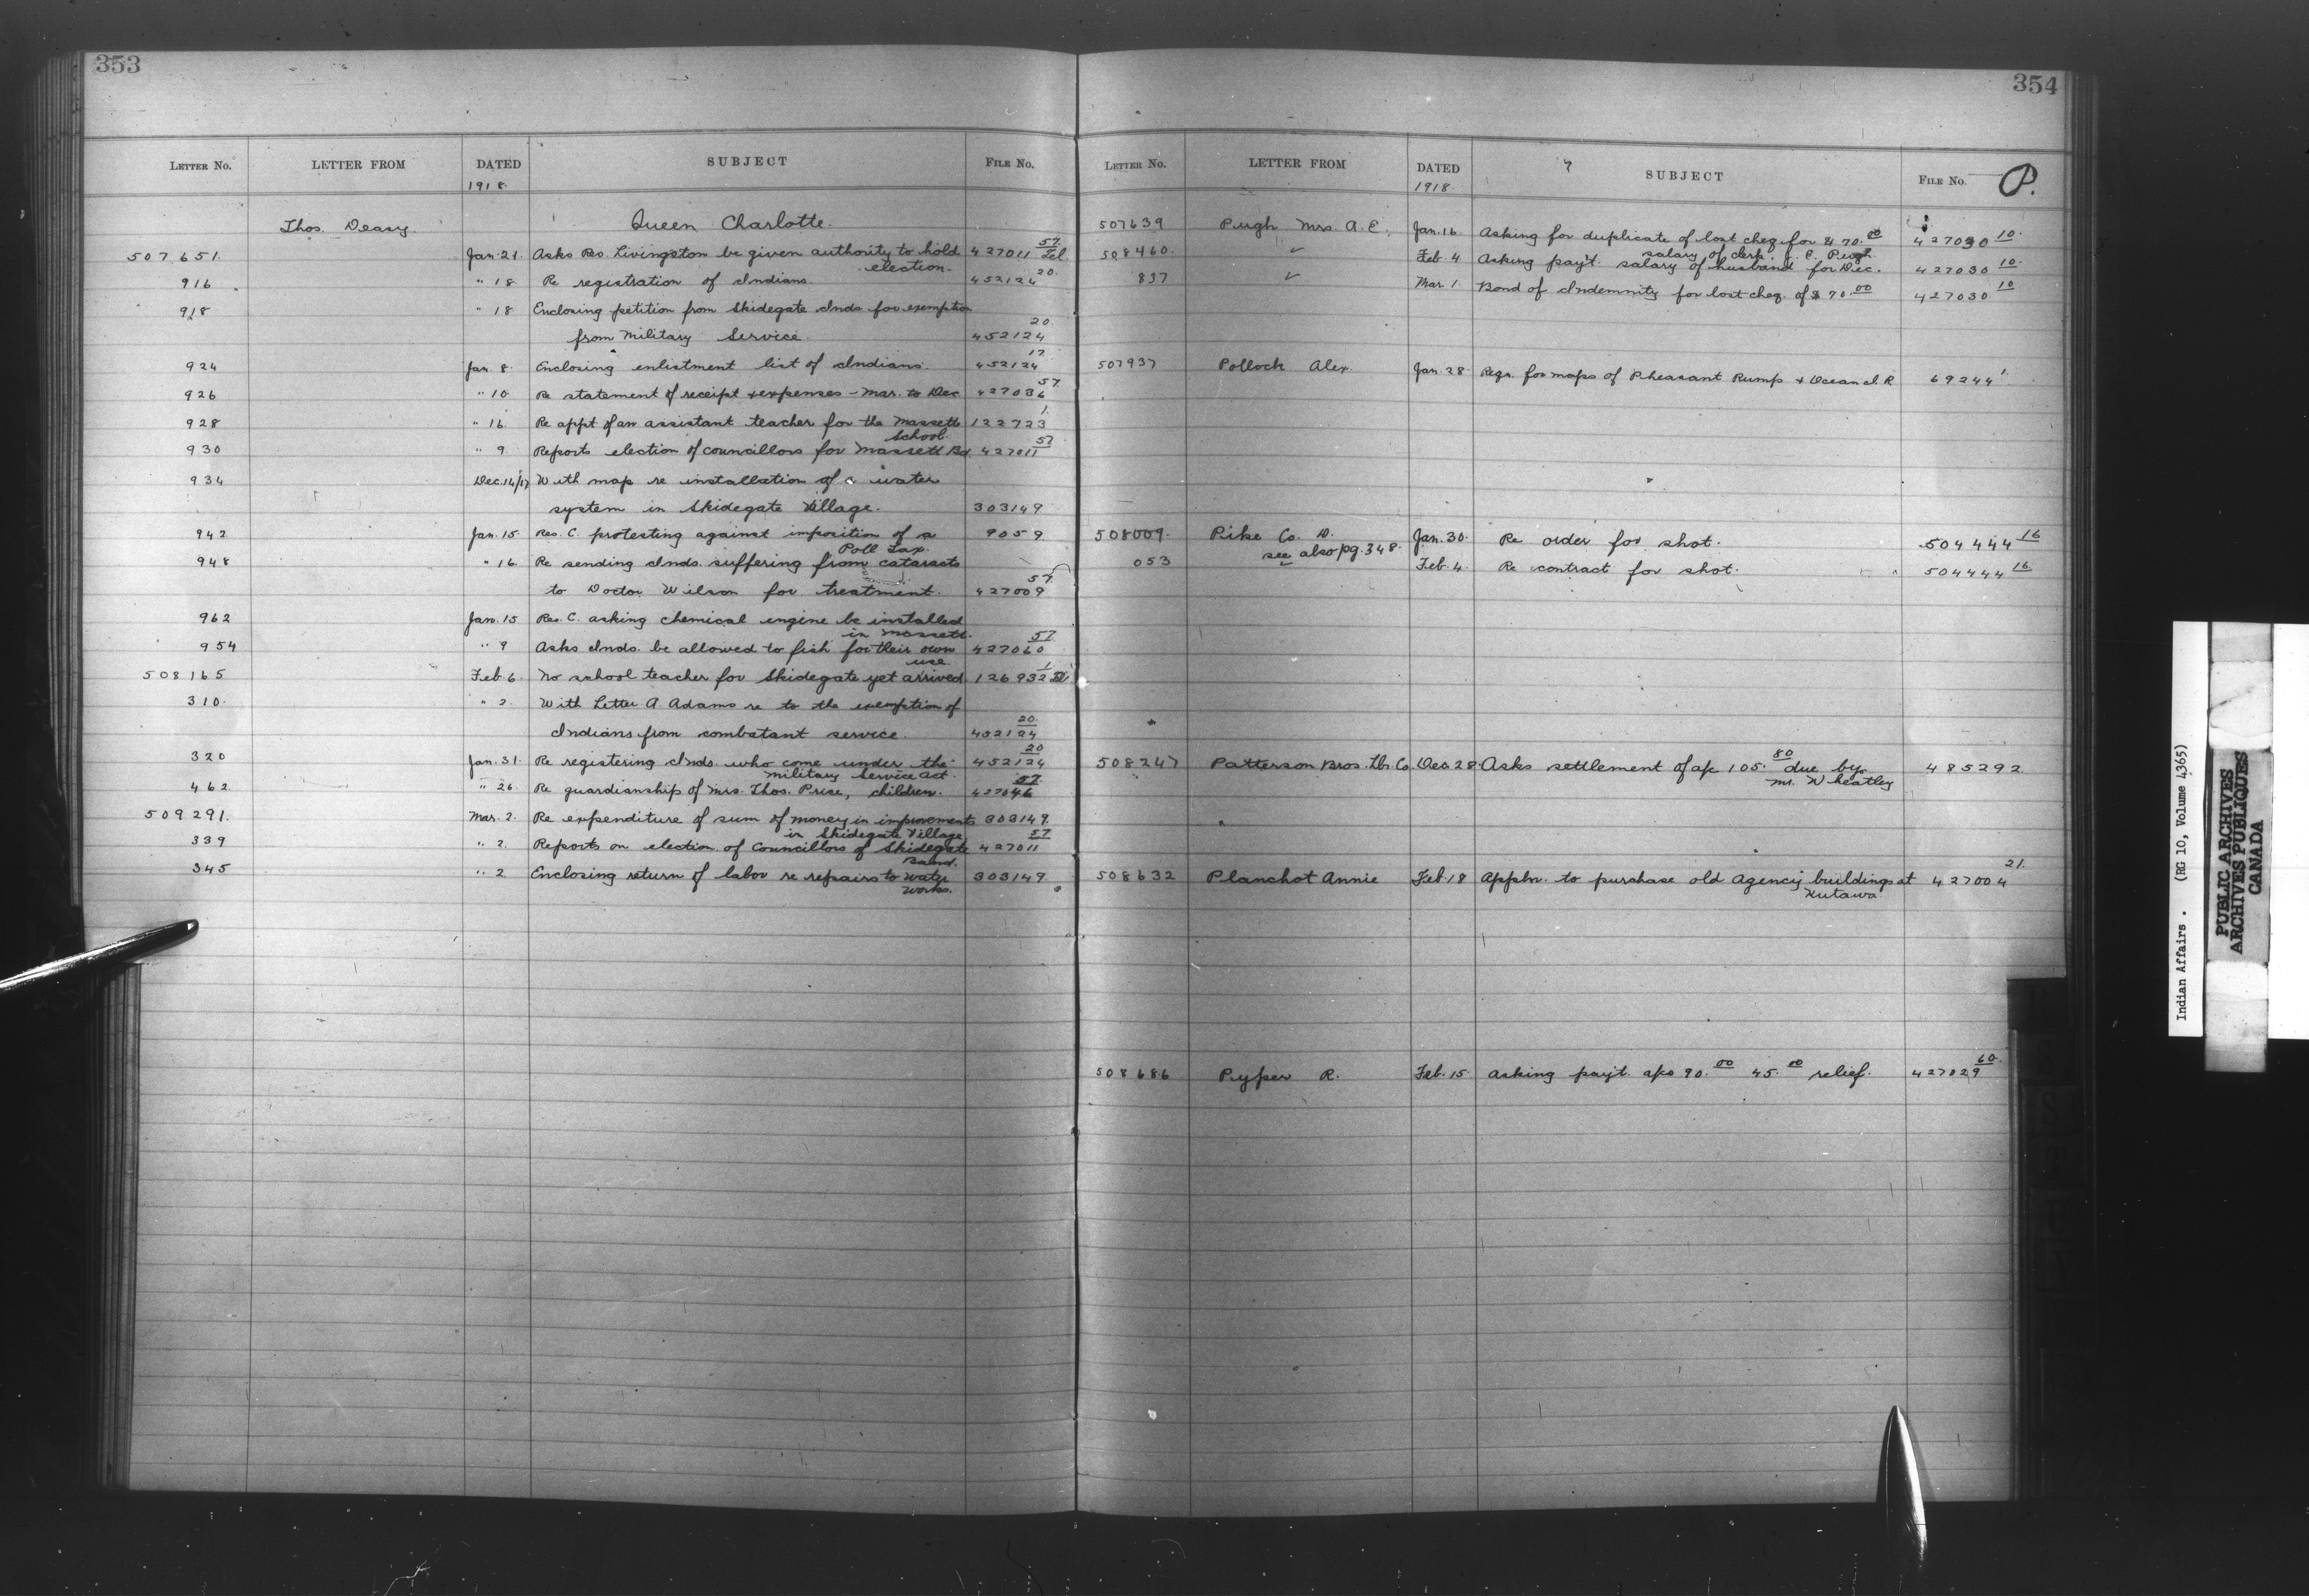 353
LETTER No. LETTER FROM DATED SUBJECT FILE No.
1918.
Thos. Deasy. Queen Charlotte.
507651. Jan. 21. Asks Res. Livingston be given authority to hold 427011 57. Tel
election.
916 " 18 Re registration of Indians. 452124 20.
918 " 18 Enclosing petition from Skidegate Inds for exemption
from Military Service. 452124 20.
924 Jan. 8. Enclosing enlistment list of Indians. 452124 17.
926 " 10 Re statement of receipt & expenses - Mar. to Dec 427036 57.
928 " 16. Re appt of an assistant teacher for the Massett 122723 1.
School.
930 " 9 Reports election of councillors for Massett Bd. 427011 57
934 Dec. 14/17 With map re installation of a water
system in Skidegate Village. 303149
942 Jan. 15. Res. C. protesting against imposition of a 9059
Poll Tax.
948 " 16. Re sending Inds. suffering from cataracts
to Doctor Wilson for treatment. 427009 57.
962 Jan. 15 Res. C. asking chemical engine be installed
in Massett.
954 " 9 Asks Inds. be allowed to fish for their own 427060 57
use
508165 Feb. 6. No school teacher for Skidegate yet arrived. 126932 1
310. " 2. With Letter A. Adams re to the exemption of
Indians from combatant service. 452124 20.
320 Jan. 31. Re registering Inds. who come under the 452124 20
Military Service Act.
462 " 26. Re guardianship of Mrs. Thos. Price, children. 427046 57.
509291. Mar. 2. Re expenditure of sum of money in improvements 303149.
in Skidegate Village
339 " 2. Reports on election of Councillors of Skidegate 427011 57
Band.
345 " 2 Enclosing return of labor re repairs to Water 303149
Works.
354
LETTER No. LETTER FROM DATED SUBJECT FILE No. P.
1918.
507639 Pugh Mrs. A. E. Jan. 16. Asking for duplicate of lost cheq. for $70.00 427030 10.
salary of clerk. Pugh
508460. ✓ Feb. 4 Asking pay't. salary of husband for Dec. 427030 10.
837 ✓ Mar. 1. Bond of Indemnity for lost cheq. of $70.00 427030 10
507937 Pollock Alex. Jan. 28 Reqn. for maps of Pheasant Rump & Ocean I. R 69244 1.
508009. Pike Co. D. Jan. 30. Re order for shot. 504444 16
see also pg. 348.
053 Feb. 4. Re contract for shot. 504444 16
508247 Patterson Bros. Lbr. Co. Dec. 28 Asks settlement of a/c 105.80 due by 485292
Mr. Wheatley
508632 Planchot Annie Feb. 18 Appln. to purchase old agency buildings at 427004 21.
Kutawa
508686 Pyper R. Feb. 15. Asking pay't. a/cs 90.00 45.00 relief. 427029 60.
Indian Affairs. (RG 10, Volume 4365)
PUBLIC ARCHIVES
ARCHIVES PUBLIQUES
CANADA